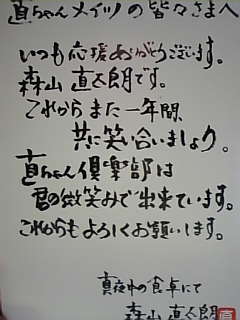 直ちゃんメイツの皆々さまへ
いつも応援ありがとうございます。
森山直太朗です。
これからまた一年間、
共に笑い合いましょう。
直ちゃん倶楽部は
君の微笑みで出来ています。
これからもよろしくお願いします。
真夜中の食卓にて
森山直太朗
直